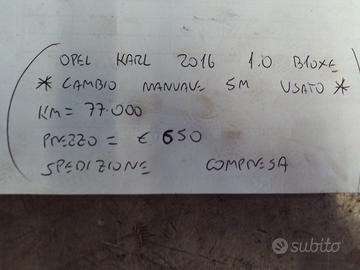 OPEL KARL 2016 1.0 B10XE
* CAMBIO MANUALE 5M USATO *
KM = 77.000
PREZZO = € 650
SPEDIZIONE COMPRESA
subito